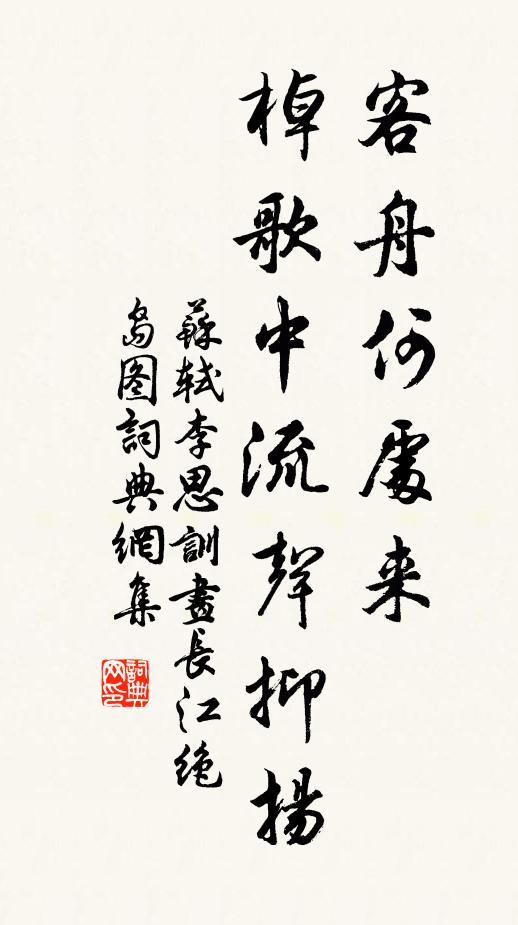 客舟何處来
棹歌中流聲抑揚
蘇軾李思訓畫長江绝
島图詞典網集
詞典
网印